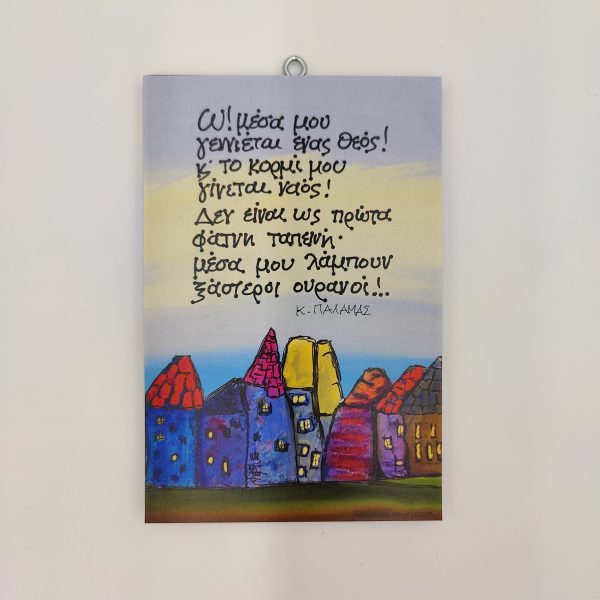 Ω! μέσα μου
γεννιέται ένας Θεός!
κ' το κορμί μου
γίνεται ναός!
Δεν είναι ως πρώτα
φάτνη ταπεινή·
μέσα μου λάμπουν
ξάστεροι ουρανοί!..
Κ. ΠΑΛΑΜΑΣ